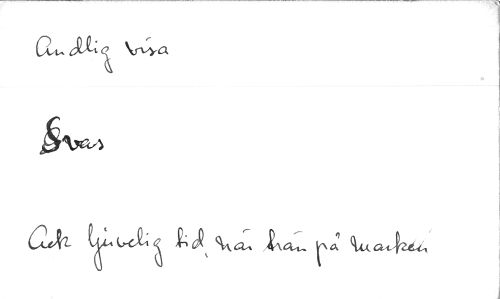 Andlig visa
Svas
Ack ljuvelig tid, när trän på marken